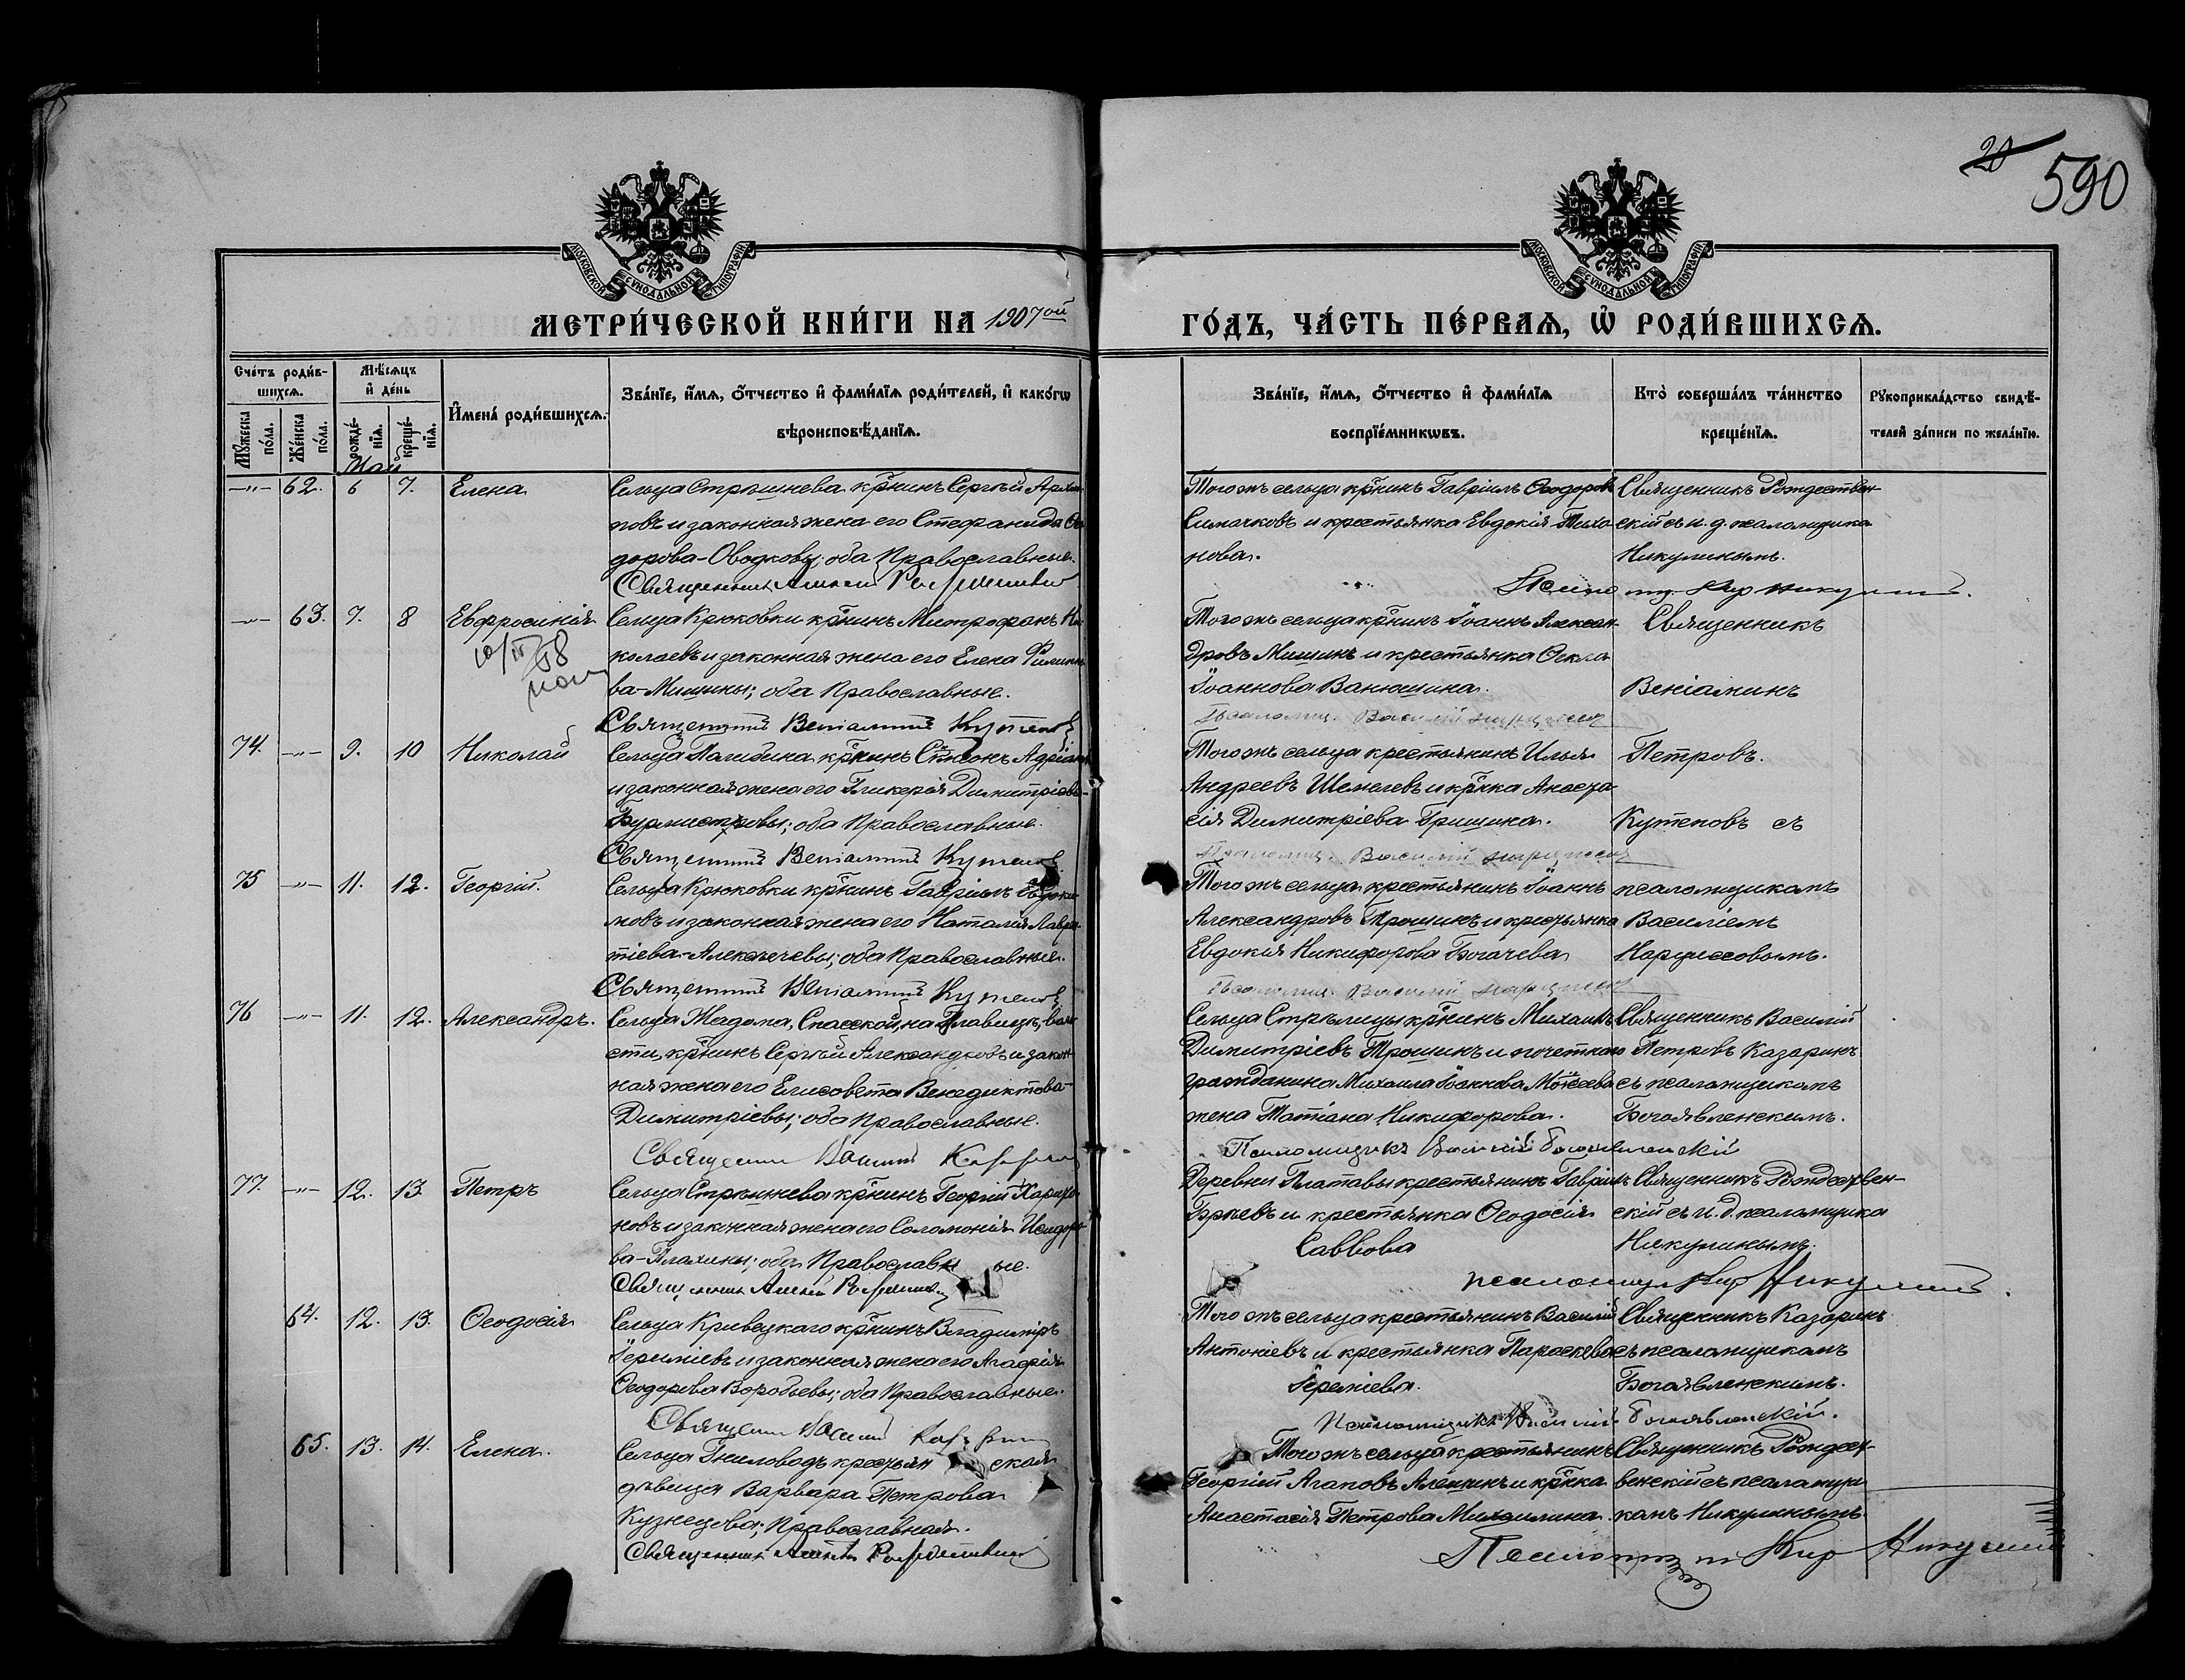 20 590
МОСКОВСКОЙ СѴНОДАЛЬНОЙ ТИПОГРАФІИ
МОСКОВСКОЙ СѴНОДАЛЬНОЙ ТИПОГРАФІИ
МЕТРИ́ЧЕСКОЙ КНИ́ГИ НА 1907ой ГО́ДЪ, ЧА́СТЬ ПЕ́РВАѦ, Ѽ РОДИ́ВШИХСѦ.
Сче́тъ роди́в-
шихсѧ.
Мꙋжеска по́ла.
Же́нска по́ла.
Мѣ́сѧцъ и҆ де́нь
рожде́-нїѧ.
креще́-нїѧ.
И҆мена̀ роди́вшихсѧ.
Зва́нїе, и҆́мѧ, ѻ҆́тчество и҆ фами́лїѧ роди́телей, и҆ како́гѡ
вѣроисповѣ́данїѧ.
Зва́нїе, и҆́мѧ, ѻ҆́тчество и҆ фами́лїѧ
воспрїе́мникѡвъ.
Кто̀ соверша́лъ та́инство
креще́нїѧ.
Рꙋкоприкла́дство свидѣ́-
телей за́писи по жела́нїю.
Май
—"— 62. 6 7. Елена
Сельца Стрѣшнева кр̃нинъ Сергѣй Архип-
повъ и законная жена его Стефанида Ѳео-
дорова-Оводковы; оба Православные.
Священникъ Алексѣй Рождественскій
Того жъ сельца кр̃нинъ Гавріилъ Ѳеодоровъ
Симачковъ и крестьянка Евдокія Тихо-
нова.
Священникъ Рождествен-
скій съ и. д. псаломщика
Никулинымъ.
—"— 63. 7. 8 Евфросинія
10/IV 58
Сельца Крюковки кр̃нинъ Митрофанъ Ни-
колаевъ и законная жена его Елена Филипо-
ва-Мишины; оба Православные.
Священникъ Веніаминъ Кутеповъ
Того жъ сельца кр̃нинъ Іоаннъ Алексан-
дровъ Мишинъ и крестьянка Ѳекла
Іоаннова Ванюшина.
Псаломщ. Василій Нарциссовъ
Священникъ
Веніаминъ
74. —"— 9. 10 Николай
Сельца Пашбина кр̃нинъ Сѵмеонъ Адріановъ
и законная жена его Гликерія Димитріева-
Бурмистровы; оба Православные.
Священникъ Веніаминъ Кутеповъ
Того жъ сельца крестьянинъ Илья
Андреевъ Шемелевъ и кр̃нка Анаста-
сія Димитріева Гришина.
Псаломщ. Василій Нарциссовъ
Петровъ.
Кутеповъ съ
75 —"— 11. 12. Георгій.
Сельца Крюковки кр̃нинъ Гавріилъ Евдоки-
мовъ и законная жена его Наталія Лаврен-
тіева-Алексечевы; оба Православные.
Священникъ Веніаминъ Кутеповъ
Того жъ сельца крестьянинъ Іоаннъ
Александровъ Трошинъ и крестьянка
Евдокія Никифорова Богачева
Псаломщ. Василій Нарциссовъ
псаломщикомъ
Василіемъ
Нарциссовымъ.
76 —"— 11. 12. Александръ.
Сельца Жадома, Спасской на Плавицѣ, воло-
сти, кр̃нинъ Сергѣй Александровъ и закон-
ная жена его Елисавета Венедиктова-
Димитріевы; оба Православные.
Священникъ Василій Казаринъ
Сельца Стрѣлицы кр̃нинъ Михаилъ
Димитріевъ Трошинъ и почетнаго
гражданина Михаила Іоаннова Моѵсеева
жена Татіана Никифорова.
Псаломщикъ Василій Богоявленскій
Священникъ Василій
Петровъ Казаринъ
съ псаломщикомъ
Богоявленскимъ.
77. —"— 12. 13. Петръ
Сельца Стрѣшнева кр̃нинъ Георгій Харито-
новъ и законная жена его Соломонія Исидоро-
ва-Плахины; оба Православные.
Священникъ Алексѣй Рождественскій
Деревни Платавы крестьянинъ Гавріилъ
и крестьянка Ѳеодосія
Саввова
Священникъ Рождествен-
скій съ и. д. псаломщика
Никулинымъ.
64. 12. 13. Ѳеодосія
Сельца Кривецкаго кр̃нинъ Владиміръ
Іереміевъ и законная жена его Агафія
Ѳеодорова Воробьевы; оба Православные.
Священникъ Василій Казаринъ
Того жъ сельца крестьянинъ Василій
Антоніевъ и крестьянка Параскева
Іереміева.
Псаломщикъ Василій Богоявленскій.
Священникъ Казаринъ
съ псаломщикомъ
Богоявленскимъ.
65. 13. 14. Елена.
Сельца Гниловодъ крестьянская
дѣвица Варвара Петрова
Кузнецова; Православная.
Священникъ Алексѣй Рождественскій
Того жъ сельца крестьянинъ
Георгій Агаповъ Алешинъ и кр̃нка
Анастасія Петрова Михалина.
Священникъ Рождест-
венскій съ псаломщи-
комъ Никулинымъ.